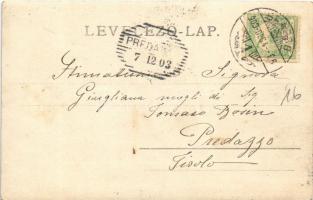 LEVELEZŐ-LAP.
PREDAZZO
7 12 03
Stimatissima Signora
Giugliana mogli di Sig
Tomaso Bosin
Predazzo
Tirolo
16